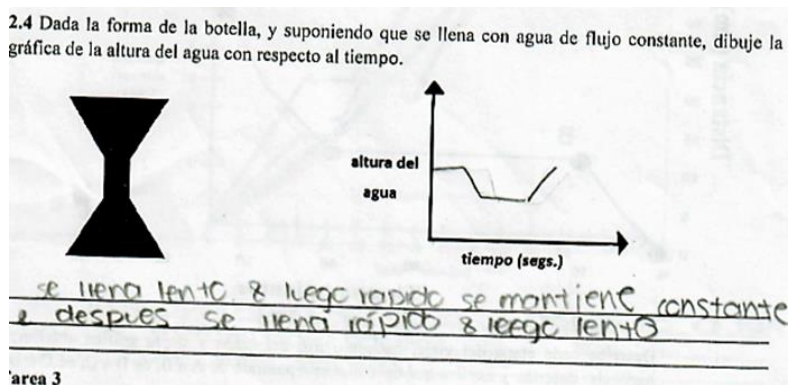 2.4 Dada la forma de la botella, y suponiendo que se llena con agua de flujo constante, dibuje la
gráfica de la altura del agua con respecto al tiempo.
altura del
agua
tiempo (segs.)
se llena lento & luego rapido se mantiene constante
e despues se llena rápido & leego lento
area 3